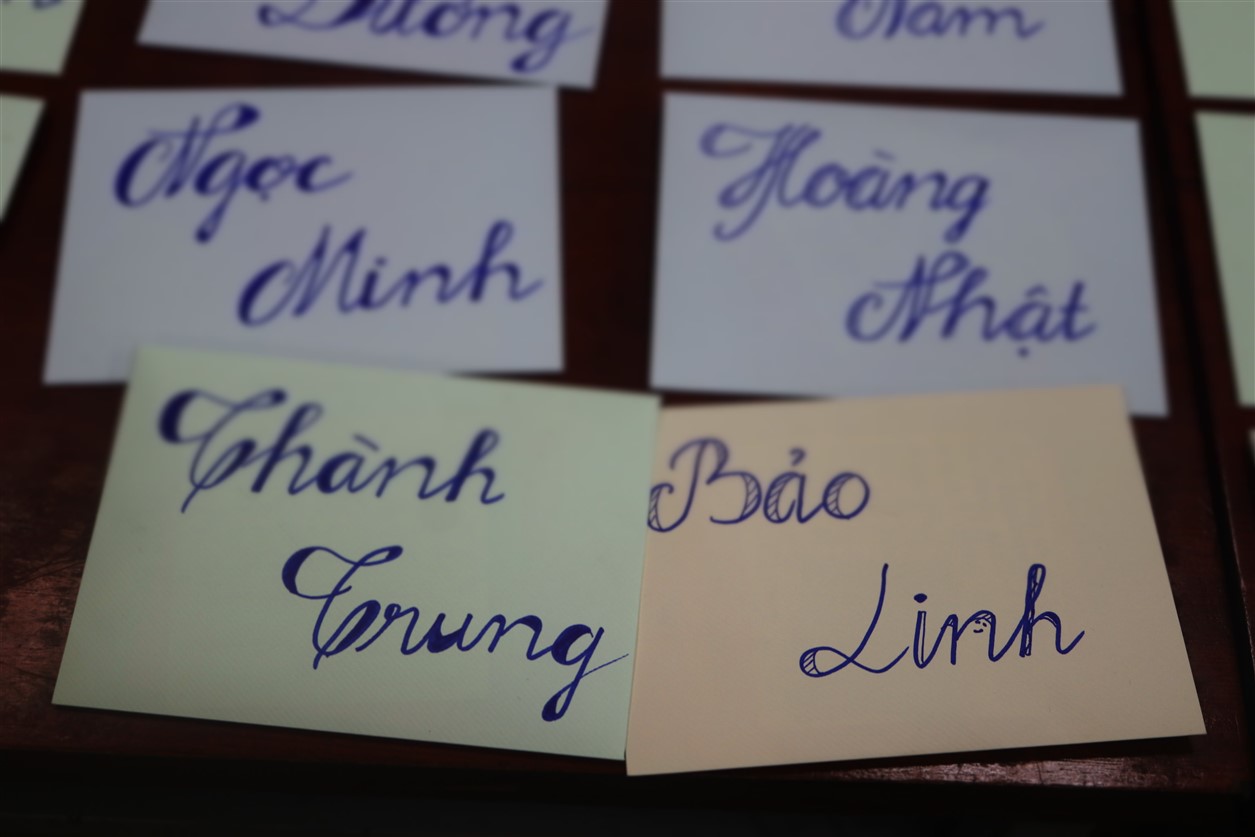 Dương
Nam
Ngọc
Minh
Hoàng
Nhật
Thành
Trung
Bảo
Linh